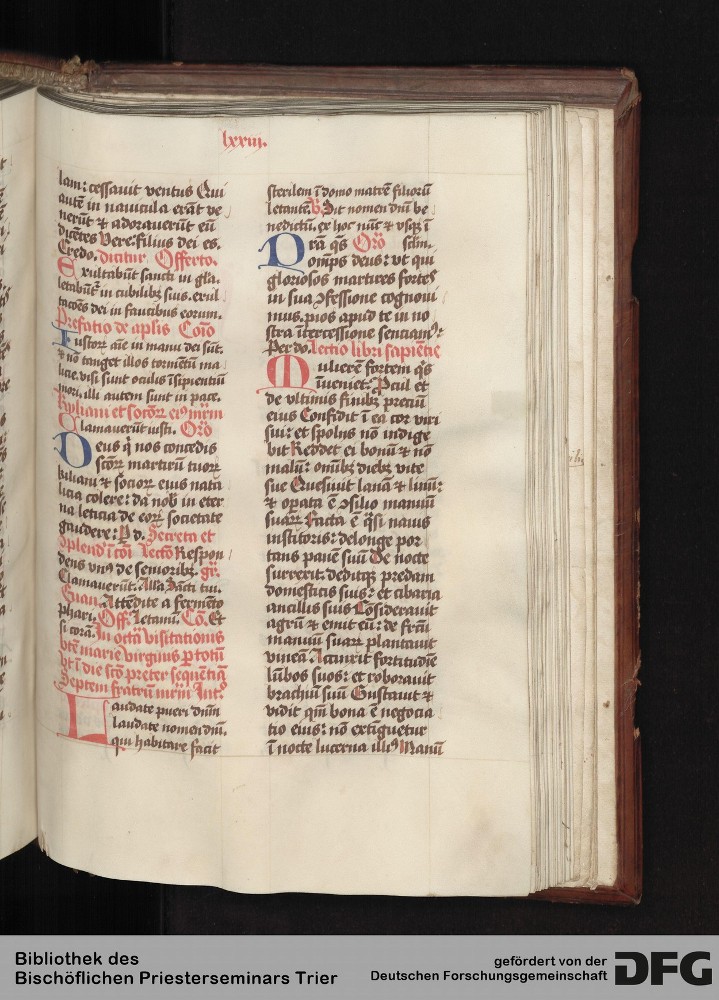 lxxiii.
lam: cessauit ventus Qui
autē in nauicula erāt ve
nerūt ⁊ adorauerūt eū
dicētes Vere: filius dei es.
Credo. dicitur Offerto.
Exultabūt sancti in gła.
letabūt ī cubilibꝫ suis. exul
tacōes dei in faucibus eorum.
Prefatio de aplis Coīo
Iustorꝝ aīe in manu dei sūt.
⁊ nō tanget illos tormētū ma
licie. visi sunt oculis īsipientiū
mori. illi autem sunt in pace.
Kyliani et socorꝝ eiꝰ mr̄m
Clamauerūt iusti. Oro
Deus q̄ nos concedis
sctōrꝝ martirū tuorꝝ
kiliani ⁊ sociorꝝ eius nata
licia colere: da nob̄ in eter
na leticia de eorꝝ societate
gaudere: P d. Secreta et
Lecto Respon
dens vnꝰ de senioribꝫ. gr̄.
Clamauerūt. Alla Sācti tui.
Ewan. Attēdite a fermēto
phari. Off. Letami. Cō. Et
si corā. In octā visitationis
btē marie virginis ꝑ totū
vt ī die sctō preter sequētiā
Septem fratrū mr̄m Intꝰ
Laudate pueri dn̄m
laudate nomen dn̄i.
qui habitare facit
sterilem ī domo matrē filiorū
letantē. V Sit nomen dn̄i be
nedictū. ex hoc nūc ⁊ vsqꝫ ī
Pra q̄s Oro sclm.
omīps deus: vt qui
gloriosos martires fortes
in sua ꝯfessione cognoui
mus. pios apud te in no
stra ītercessione senciamꝰ:
Per do. Lectio libri sapiēcie
Mulierē fortem q̄s
īueniet: Pcul et
de vltimis finibꝫ preciū
eius Confidit ī ea cor viri
sui: et spolijs nō indige
bit Reddet ei bonū ⁊ nō
malū: omībꝫ diebꝫ vite
sue Quesiuit lanā ⁊ linū:
⁊ opata ē ꝯsilio manuū
suarꝝ Facta ē q̄si nauis
institoris: de longe por
tans panē suū De nocte
surrexit. deditqꝫ predam
domesticis suis: et cibaria
ancillis suis Cōsiderauit
agrū ⁊ emit eū: de frcū
manuū suarꝝ plantauit
vineā. Accinxit fortitudīe
lūbos suos: et roborauit
brachiū suū Gustauit ⁊
vidit qm̄ bona ē negocia
tio eius: nō extīguetur
ī nocte lucerna illiꝰ Manū
Bibliothek des
Bischöflichen Priesterseminars Trier
gefördert von der
Deutschen Forschungsgemeinschaft
DFG